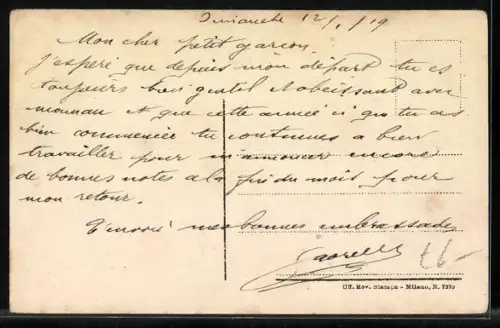 Dimanche 12/1/19
Mon cher petit garçon
j'espère que depuis mon départ tu es
toujours bien gentil et obéissant avec
maman et que cette année ci que tu as
bien commencée tu continues a bien
travailler pour m'annoncer encore
de bonnes notes a la fin du mois pour
mon retour.
T'envoie mes bonnes embrassades
Uff. Rev. Stampa - Milano, N. 7379